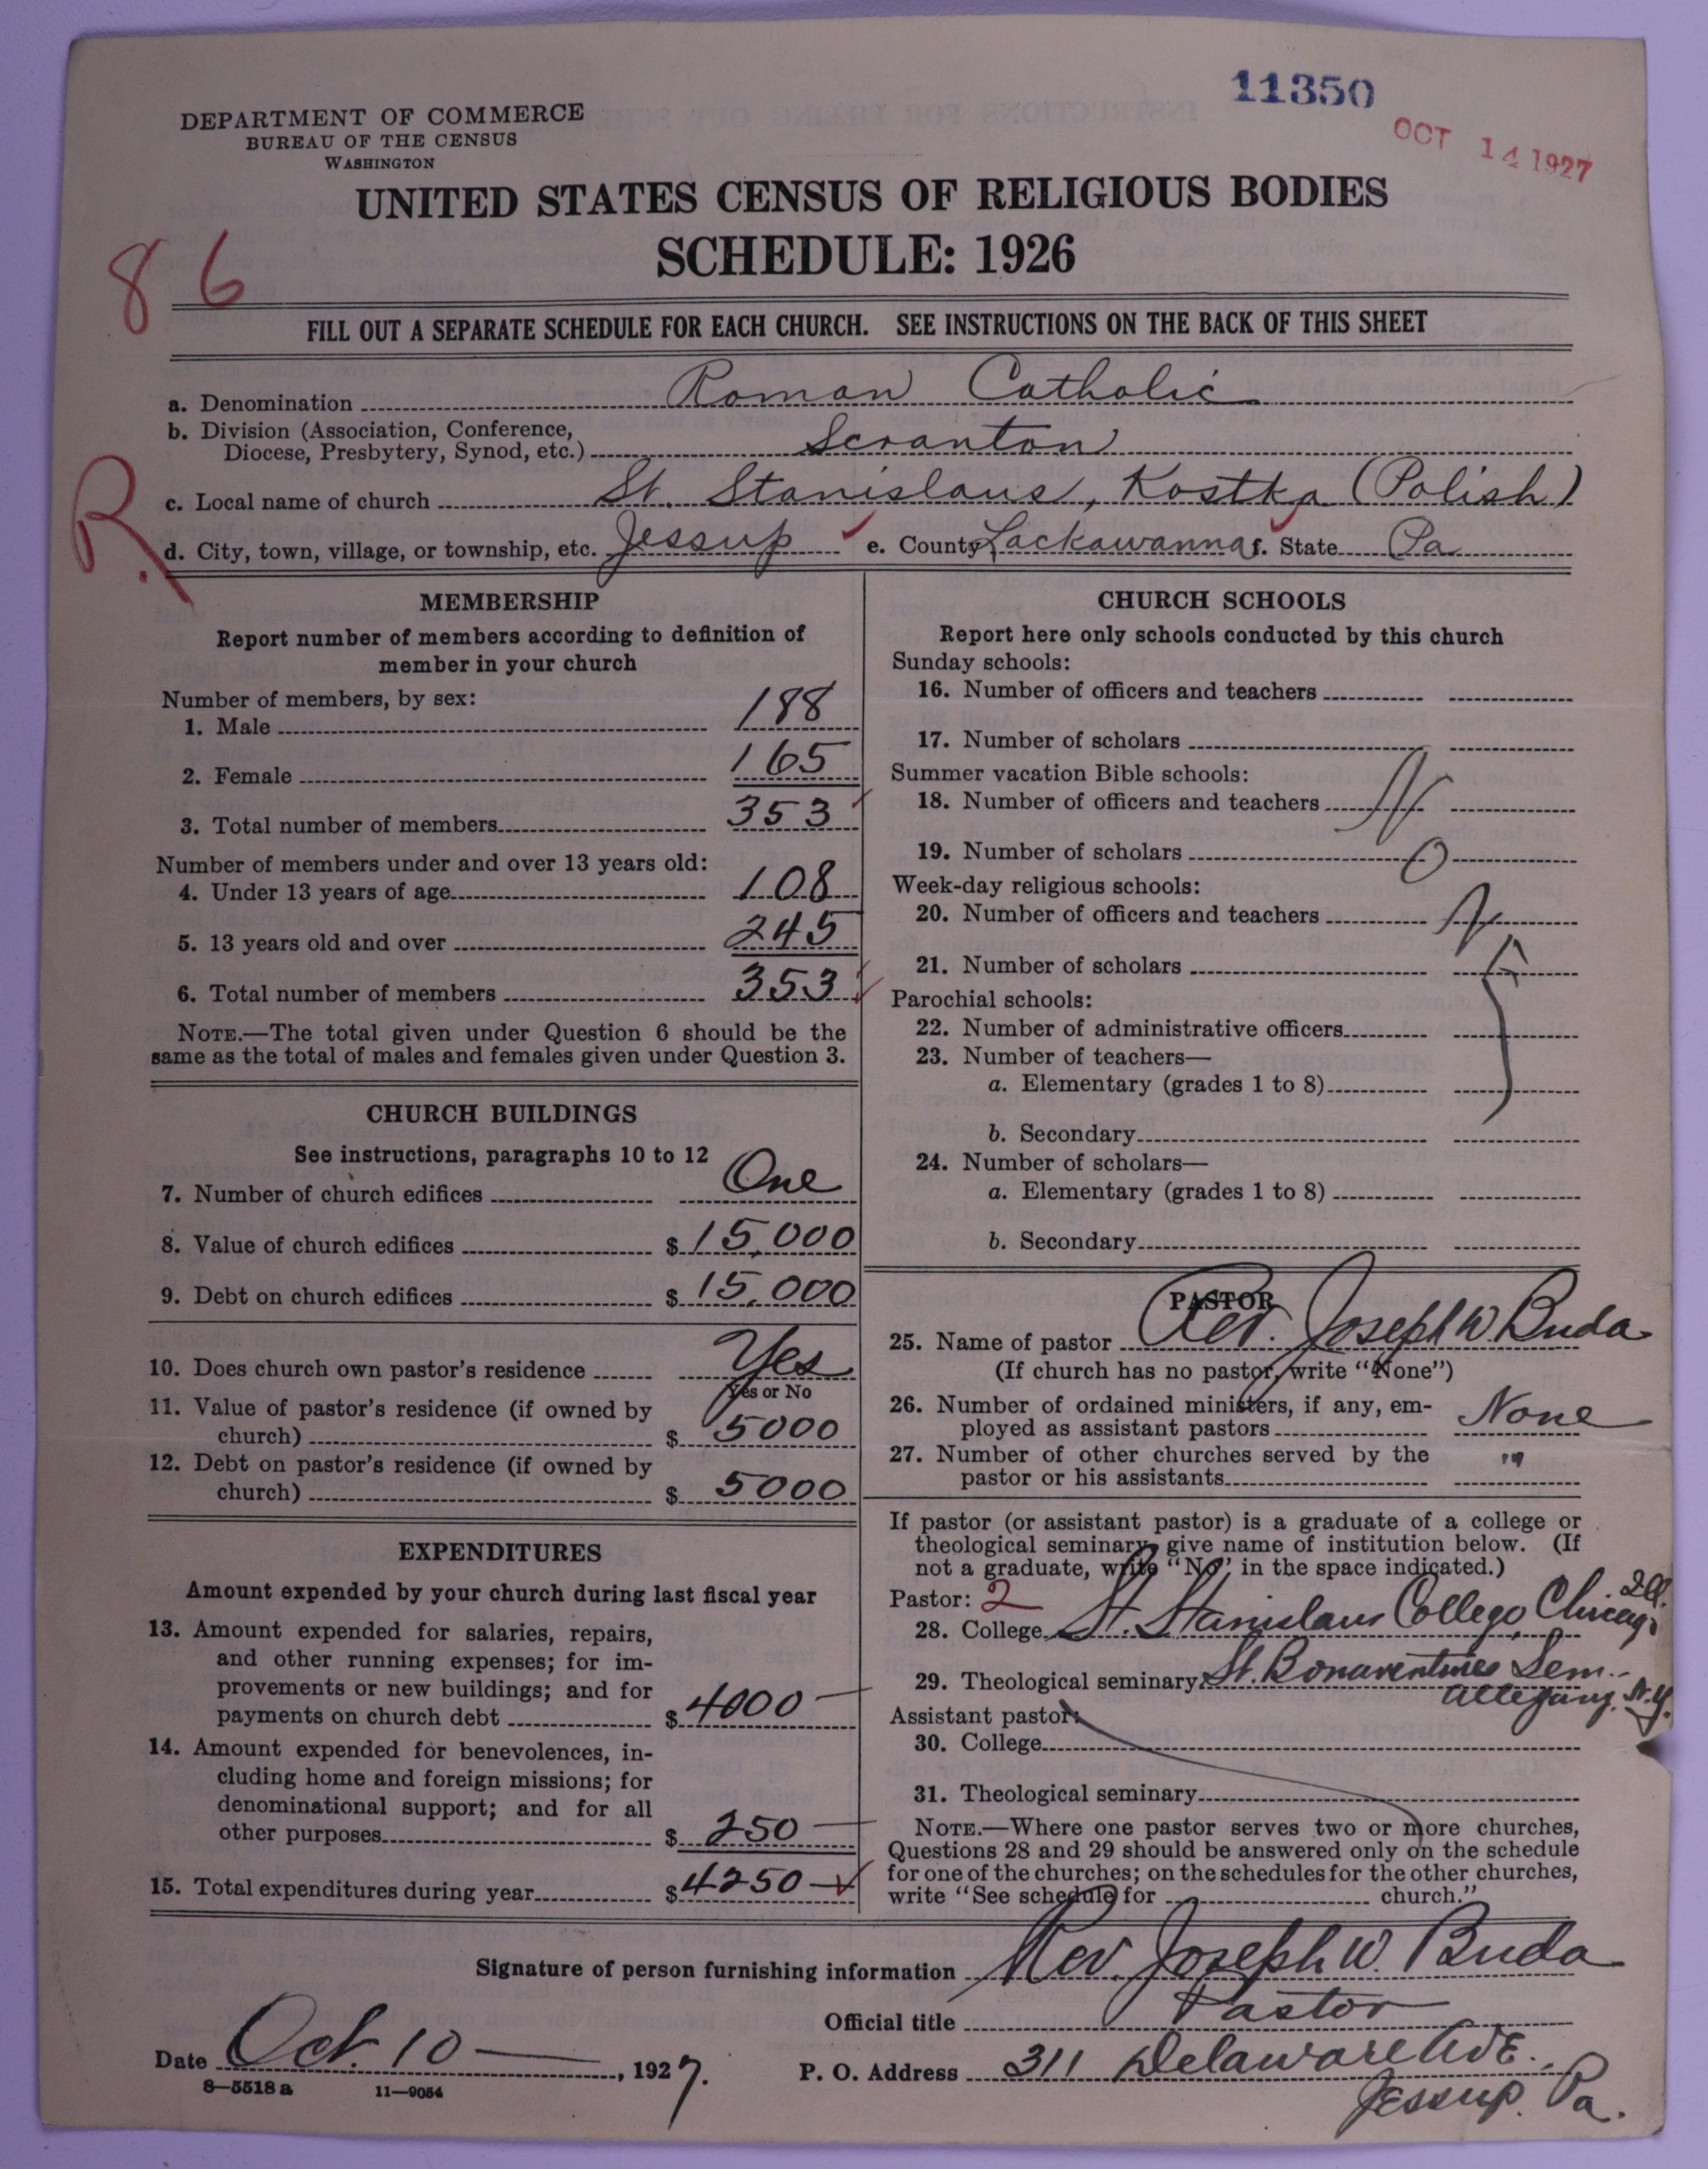 11350
OCT 14 1927
DEPARTMENT OF COMMERCE
BUREAU OF THE CENSUS
WASHINGTON
UNITED STATES CENSUS OF RELIGIOUS BODIES
SCHEDULE: 1926
86
FILL OUT A SEPARATE SCHEDULE FOR EACH CHURCH. SEE INSTRUCTIONS ON THE BACK OF THIS SHEET
a. Denomination Roman Catholic
b. Division (Association, Conference,
Diocese, Presbytery, Synod, etc.) Scranton
R.
c. Local name of church St. Stanislaus, Kostka (Polish)
d. City, town, village, or township, etc. Jessup e. County Lackawanna f. State Pa
MEMBERSHIP
Report number of members according to definition of
member in your church
Number of members, by sex:
1. Male 188
2. Female 165
3. Total number of members 353
Number of members under and over 13 years old:
4. Under 13 years of age 108
5. 13 years old and over 245
6. Total number of members 353
NOTE.—The total given under Question 6 should be the
same as the total of males and females given under Question 3.
CHURCH BUILDINGS
See instructions, paragraphs 10 to 12
7. Number of church edifices One
8. Value of church edifices $ 15,000
9. Debt on church edifices $ 15,000
10. Does church own pastor's residence Yes
Yes or No
11. Value of pastor's residence (if owned by
church) $ 5000
12. Debt on pastor's residence (if owned by
church) $ 5000
EXPENDITURES
Amount expended by your church during last fiscal year
13. Amount expended for salaries, repairs,
and other running expenses; for im-
provements or new buildings; and for
payments on church debt $ 4000
14. Amount expended for benevolences, in-
cluding home and foreign missions; for
denominational support; and for all
other purposes $ 250
15. Total expenditures during year $ 4250
CHURCH SCHOOLS
Report here only schools conducted by this church
Sunday schools:
16. Number of officers and teachers
17. Number of scholars
Summer vacation Bible schools:
18. Number of officers and teachers
19. Number of scholars
Week-day religious schools:
20. Number of officers and teachers
21. Number of scholars
Parochial schools:
22. Number of administrative officers
23. Number of teachers—
a. Elementary (grades 1 to 8)
b. Secondary
24. Number of scholars—
a. Elementary (grades 1 to 8)
b. Secondary
PASTOR
25. Name of pastor Rev. Joseph W. Buda
(If church has no pastor, write "None")
26. Number of ordained ministers, if any, em-
ployed as assistant pastors None
27. Number of other churches served by the
pastor or his assistants "
If pastor (or assistant pastor) is a graduate of a college or
theological seminary, give name of institution below. (If
not a graduate, write "No" in the space indicated.)
Pastor: 2
28. College St. Stanislaus College, Chicago, Ill.
29. Theological seminary St. Bonaventures Sem.
Allegany, N.Y.
Assistant pastor:
30. College
31. Theological seminary
NOTE.—Where one pastor serves two or more churches,
Questions 28 and 29 should be answered only on the schedule
for one of the churches; on the schedules for the other churches,
write "See schedule for church."
Signature of person furnishing information Rev. Joseph W. Buda
Official title Pastor
Date Oct. 10 , 1927.
P. O. Address 311 Delaware Ave.,
Jessup, Pa.
8—5518 a 11—9054